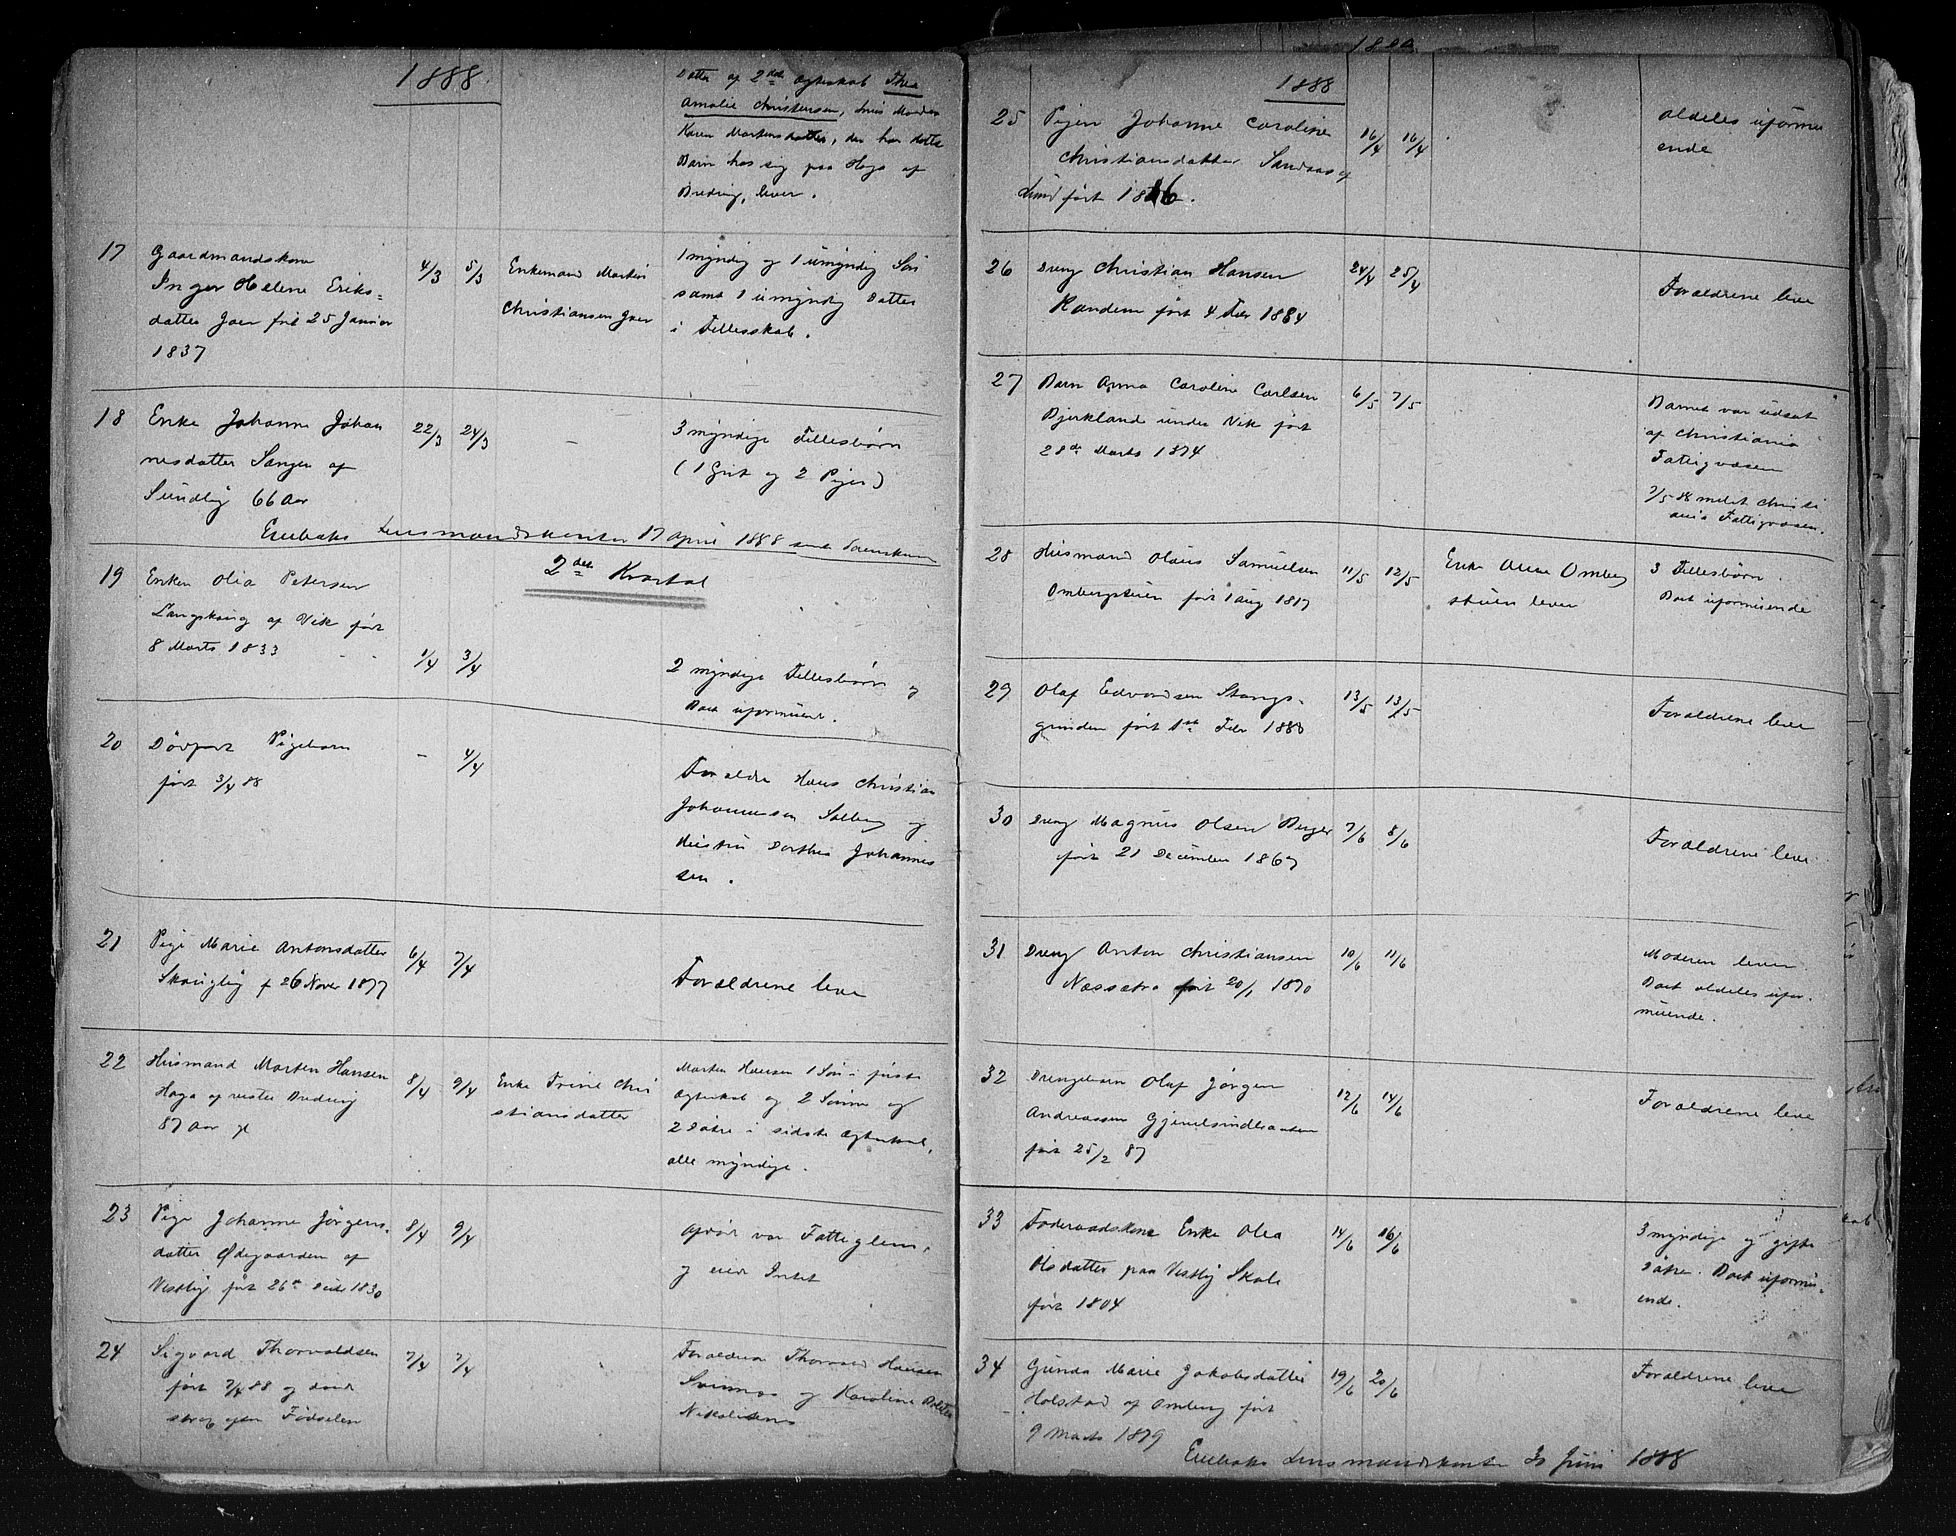 1888
Datter af 2det Ægteskab Thea
Amalie Christensen, hvis Moder
Karen Martensdatter, der har dette
Barn hos sig paa Haga af
Bredvig, lever.
17 Gaardmandskone
Inger Helene Eriks=
datter Joer født 25 Januar
1837
4/3 5/3
Enkemand Martin
Christiansen Joer
1 myndig og 1 umyndig Søn
samt 1 umyndig Datter
i Fællesskab.
18 Enke Johanne Johan
nesdatter Sanger af
Sundby 66 Aar
22/3 24/3
-
3 myndige Fællesbørn
(1 Gut og 2 Piger)
Enebaks Lensmandskontor 17 April 1888
2det Kvartal
19 Enken Olia Petersen
Langskaug af Vik født
8 Marts 1833
1/4 3/4
2 myndige Fællesbørn og
Boet uformuende.
20 Dødfødt Pigebarn
født 3/4 88
- 4/4
Forældre Hans Christian
Johannessen Solberg og
Hustru Dorthea Johannes
sen.
21 Pige Marie Antonsdatter
Skaugby f 26 Novbr 1877
6/4 7/4
Forældrene leve
22 Husmand Morten Hansen
Haga af vestre Bredvig
87 Aar gl
8/4 9/4
Enke Trine Chri
stiansdatter
Morten Hansen 1 Søn i første
Ægteskab og 2 Sønner og
2 Døtre i sidste Ægteskab,
alle myndige.
23 Pige Johanne Jørgens
datter Ødegaarden af
Vestby født 26de 1830
8/4 9/4
Afdøe var Fatteglem,
og eier Intet
24 Sigvard Thorvaldsen
født 7/4 88 og døde
strax efter Fødselen
7/4 7/4
Forældrene Thorvald Hansen
og Karoline
1888
25 Pigen Johanne Caroline
Christiansdatter Sandaas af
Lund født 1816.
16/4 16/4
aldeles uformu
ende
26 Dreng Christian Hansen
Randem født 4 Febr 1884
24/4 25/4
Forældrene leve
27 Barn Anna Caroline Carlsen
Bjerkland under Vik født
28de Marts 1874
6/5 7/5
Barnet var udsat
af Christiania
Fattigvæsen
7/5 88 meldt Christi
ania Fattigvæsen.
28 Husmand Olaus Samuelsen
Ombergstuen født 1 Aug 1817
11/5 12/5
Enke Anne Omberg
stuen lever
3 Fællesbørn.
Boet uformuende
29 Olaf Edvardsen Stangs-
grinden født 1ste Febr 1880
13/5 13/5
Forældrene leve
30 Dreng Magnus Olsen Berger
født 21 December 1867
7/6 8/6
Forældrene leve
31 Dreng Anton Christiansen
Næssetra født 20/1 1870
10/6 11/6
Moderen lever.
Boet aldeles ufor-
muende.
32 Drengebarn Olaf Jørgen
Andreassen
født 25/2 87
12/6 14/6
Forældrene leve
33 Føderaadskone Enke Olea
Olsdatter paa Vestby Skole
født 1804
14/6 16/6
3 myndige og gifte
Døtre. Boet uformu-
ende.
34 Gunda Marie Jakobsdatter
Holstad af Omberg født
9 Marts 1879
19/6 20/6
Forældrene leve
Enebaks Lensmandskontor 30 Juni 1888